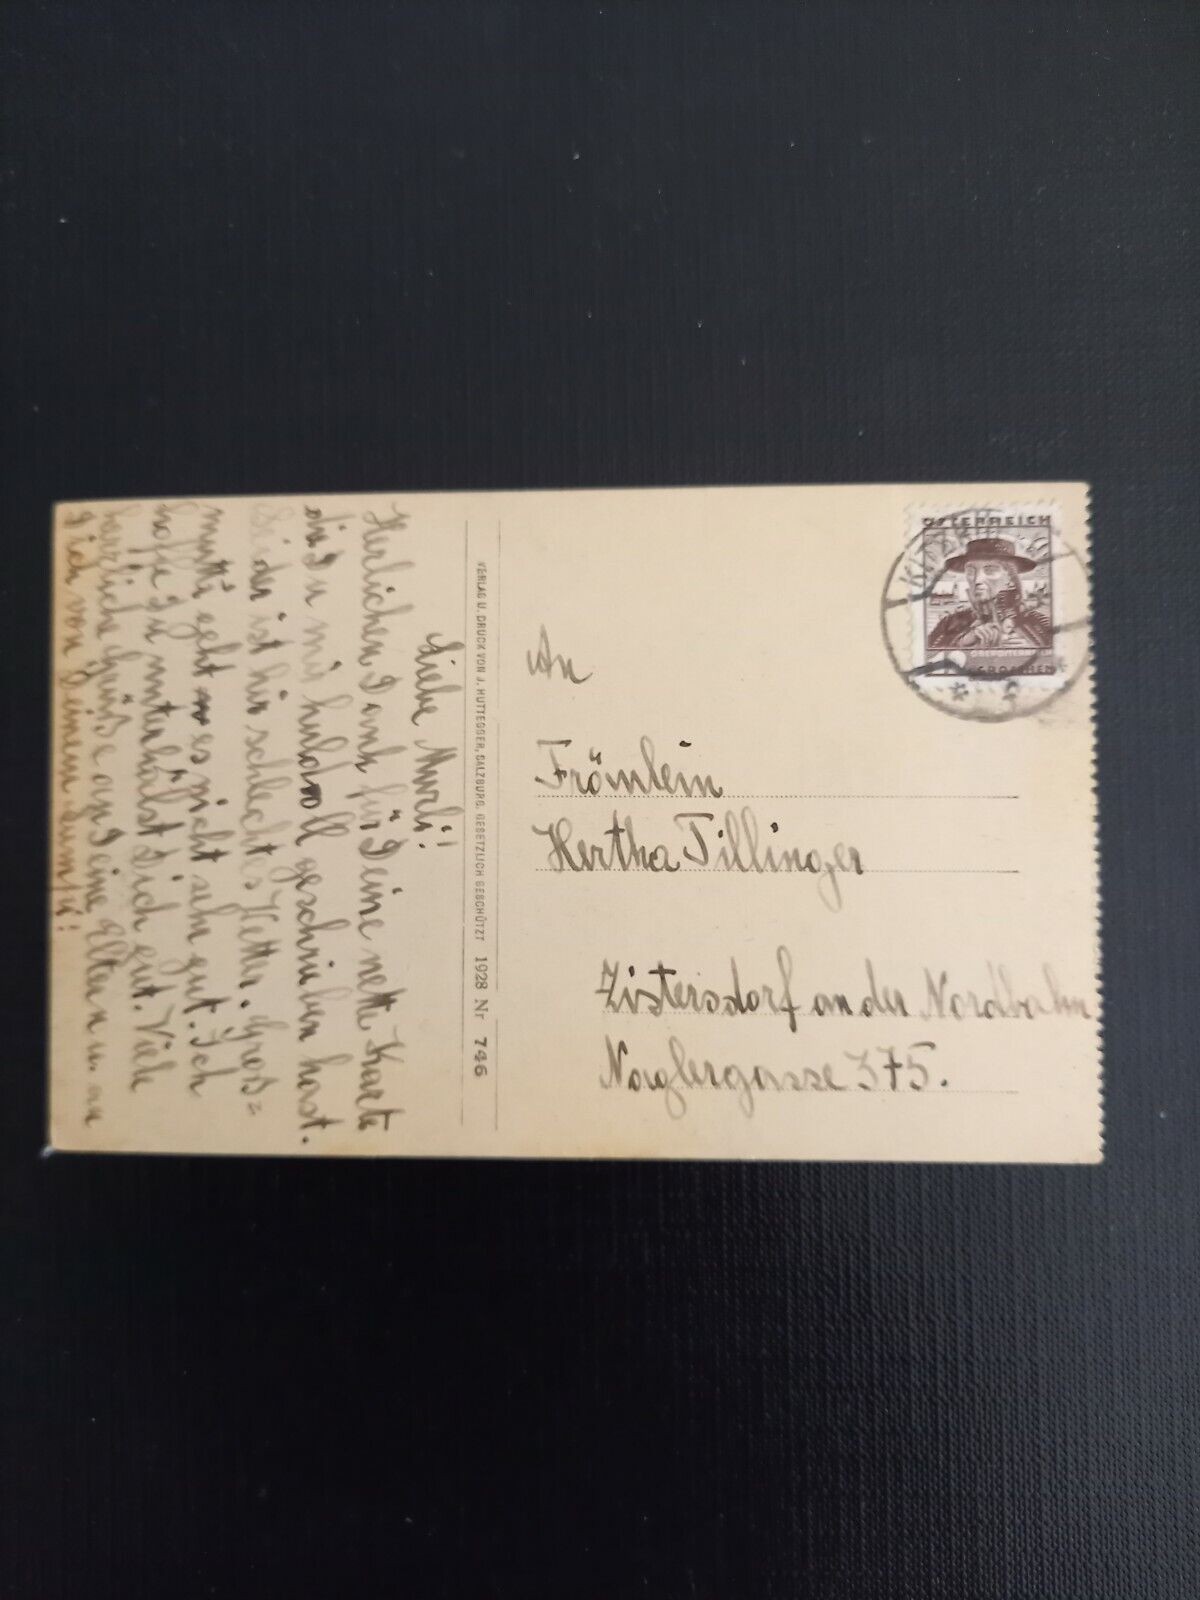 Liebe Murli!
Herlichen Dank für Deine nette Karte
die Du mir huldvoll geschrieben hast.
Leider ist hir schlechtes Wetter. Gros=
mutti geht es nicht sehr gut. Ich
hoffe Du unterhälst Dich gut. Viele
herrliche Grüße an Deine Eltern u. an
Dich von Deinem
VERLAG U. DRUCK VON J. HUTTEGGER, SALZBURG. GESETZLICH GESCHÜTZT 1928 Nr 746
ÖSTERREICH
OBERÖSTERREICH
GROSCHEN
An
Fräulein
Hertha Tillinger
Zistersdorf an der Nordbahn
Naglergasse 375.